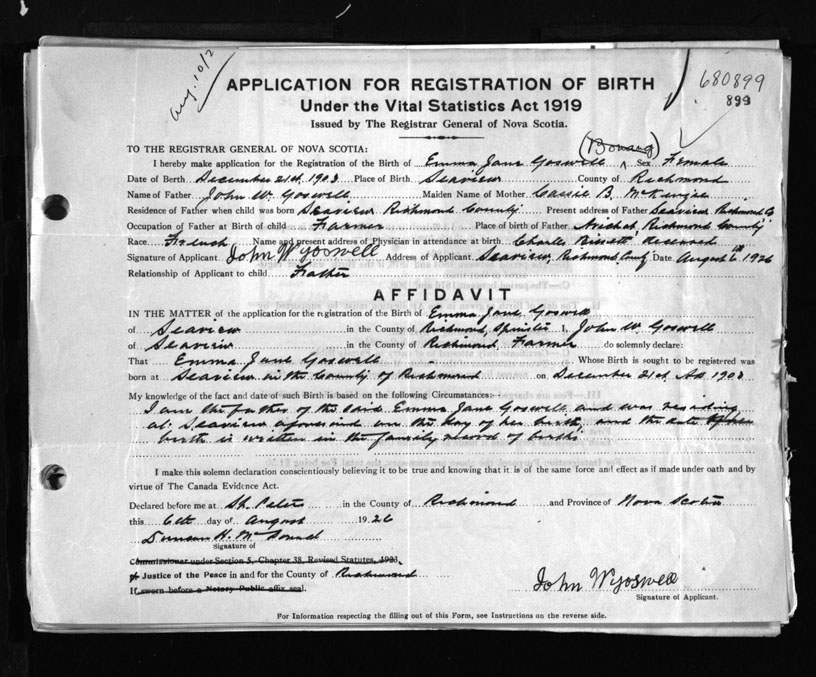 Aug. 10/2
680899
899
APPLICATION FOR REGISTRATION OF BIRTH
Under the Vital Statistics Act 1919
Issued by The Registrar General of Nova Scotia.
TO THE REGISTRAR GENERAL OF NOVA SCOTIA:
I hereby make application for the Registration of the Birth of Emma Jane Goswell Sex Female
Date of Birth December 21st. 1903 Place of Birth Seaview County of Richmond
Name of Father John W. Goswell Maiden Name of Mother Cassie B.
Residence of Father when child was born Seaview Richmond County Present address of Father Seaview Richmond Co
Occupation of Father at Birth of child Farmer Place of birth of Father Arichat, Richmond County
Race French Name and present address of Physician in attendance at birth Charles Deceased
Signature of Applicant John W Goswell Address of Applicant Seaview, Richmond County Date August 6th 1926
Relationship of Applicant to child Father
AFFIDAVIT
IN THE MATTER of the application for the registration of Birth of Emma Jane Goswell
of Seaview in the County of Richmond, Spinster I, John W. Goswell
of Seaview in the County of Richmond, Farmer do solemnly declare:
That Emma Jane Goswell Whose Birth is sought to be registered was
born at Seaview in the County of Richmond on December 21st. AD 1903
My knowledge of the fact and date of such Birth is based on the following Circumstances:-
I am the father of the said Emma Jane Goswell and was residing
at Seaview aforesaid on the day of her birth, and the date of her
birth is written in the family record of births.
I make this solemn declaration conscientiously believing it to be true and knowing that it is of the same force and effect as if made under oath and by
virtue of The Canada Evidence Act.
Declared before me at St. Peters in the County of Richmond and Province of Nova Scotia
this 6th day of August 1926
Duncan H. Mc
Signature of
Commissioner under Section 5, Chapter 38, Revised Statutes, 1923.
Justice of the Peace in and for the County of Richmond
If sworn before a Notary Public affix seal.
John W Goswell
Signature of Applicant.
For Information respecting the filling out of this Form, see Instructions on the reverse side.